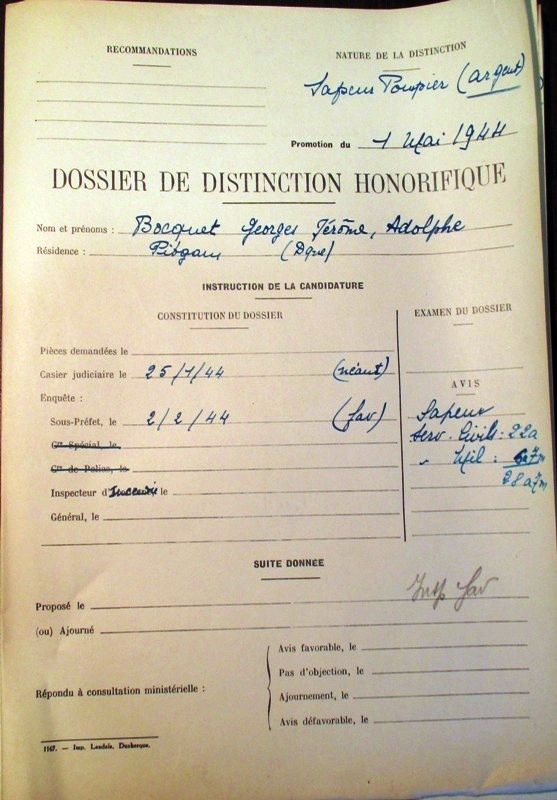 RECOMMANDATIONS
NATURE DE LA DISTINCTION
Sapeur Pompier (argent)
Promotion du 1 Mai 1944
DOSSIER DE DISTINCTION HONORIFIQUE
Nom et prénoms : Bocquet Georges Jérôme, Adolphe
Résidence : Pitgam (Dque)
INSTRUCTION DE LA CANDIDATURE
CONSTITUTION DU DOSSIER
EXAMEN DU DOSSIER
Pièces demandées le
Casier judiciaire le 25/1/44 (néant)
Enquête :
AVIS
Sous-Préfet, le 2/2/44 (fav)
Sapeur
Serv. Civils : 22a
Gt Spécial, le
" Mil : 6a7m
Gt de Police, le
28a7m
Inspecteur d'Incendie le
Général, le
SUITE DONNÉE
fav
Proposé le
(ou) Ajourné
Répondu à consultation ministérielle :
Avis favorable, le
Pas d'objection, le
Ajournement, le
Avis défavorable, le
1167. — Imp. Landais, Dunkerque.